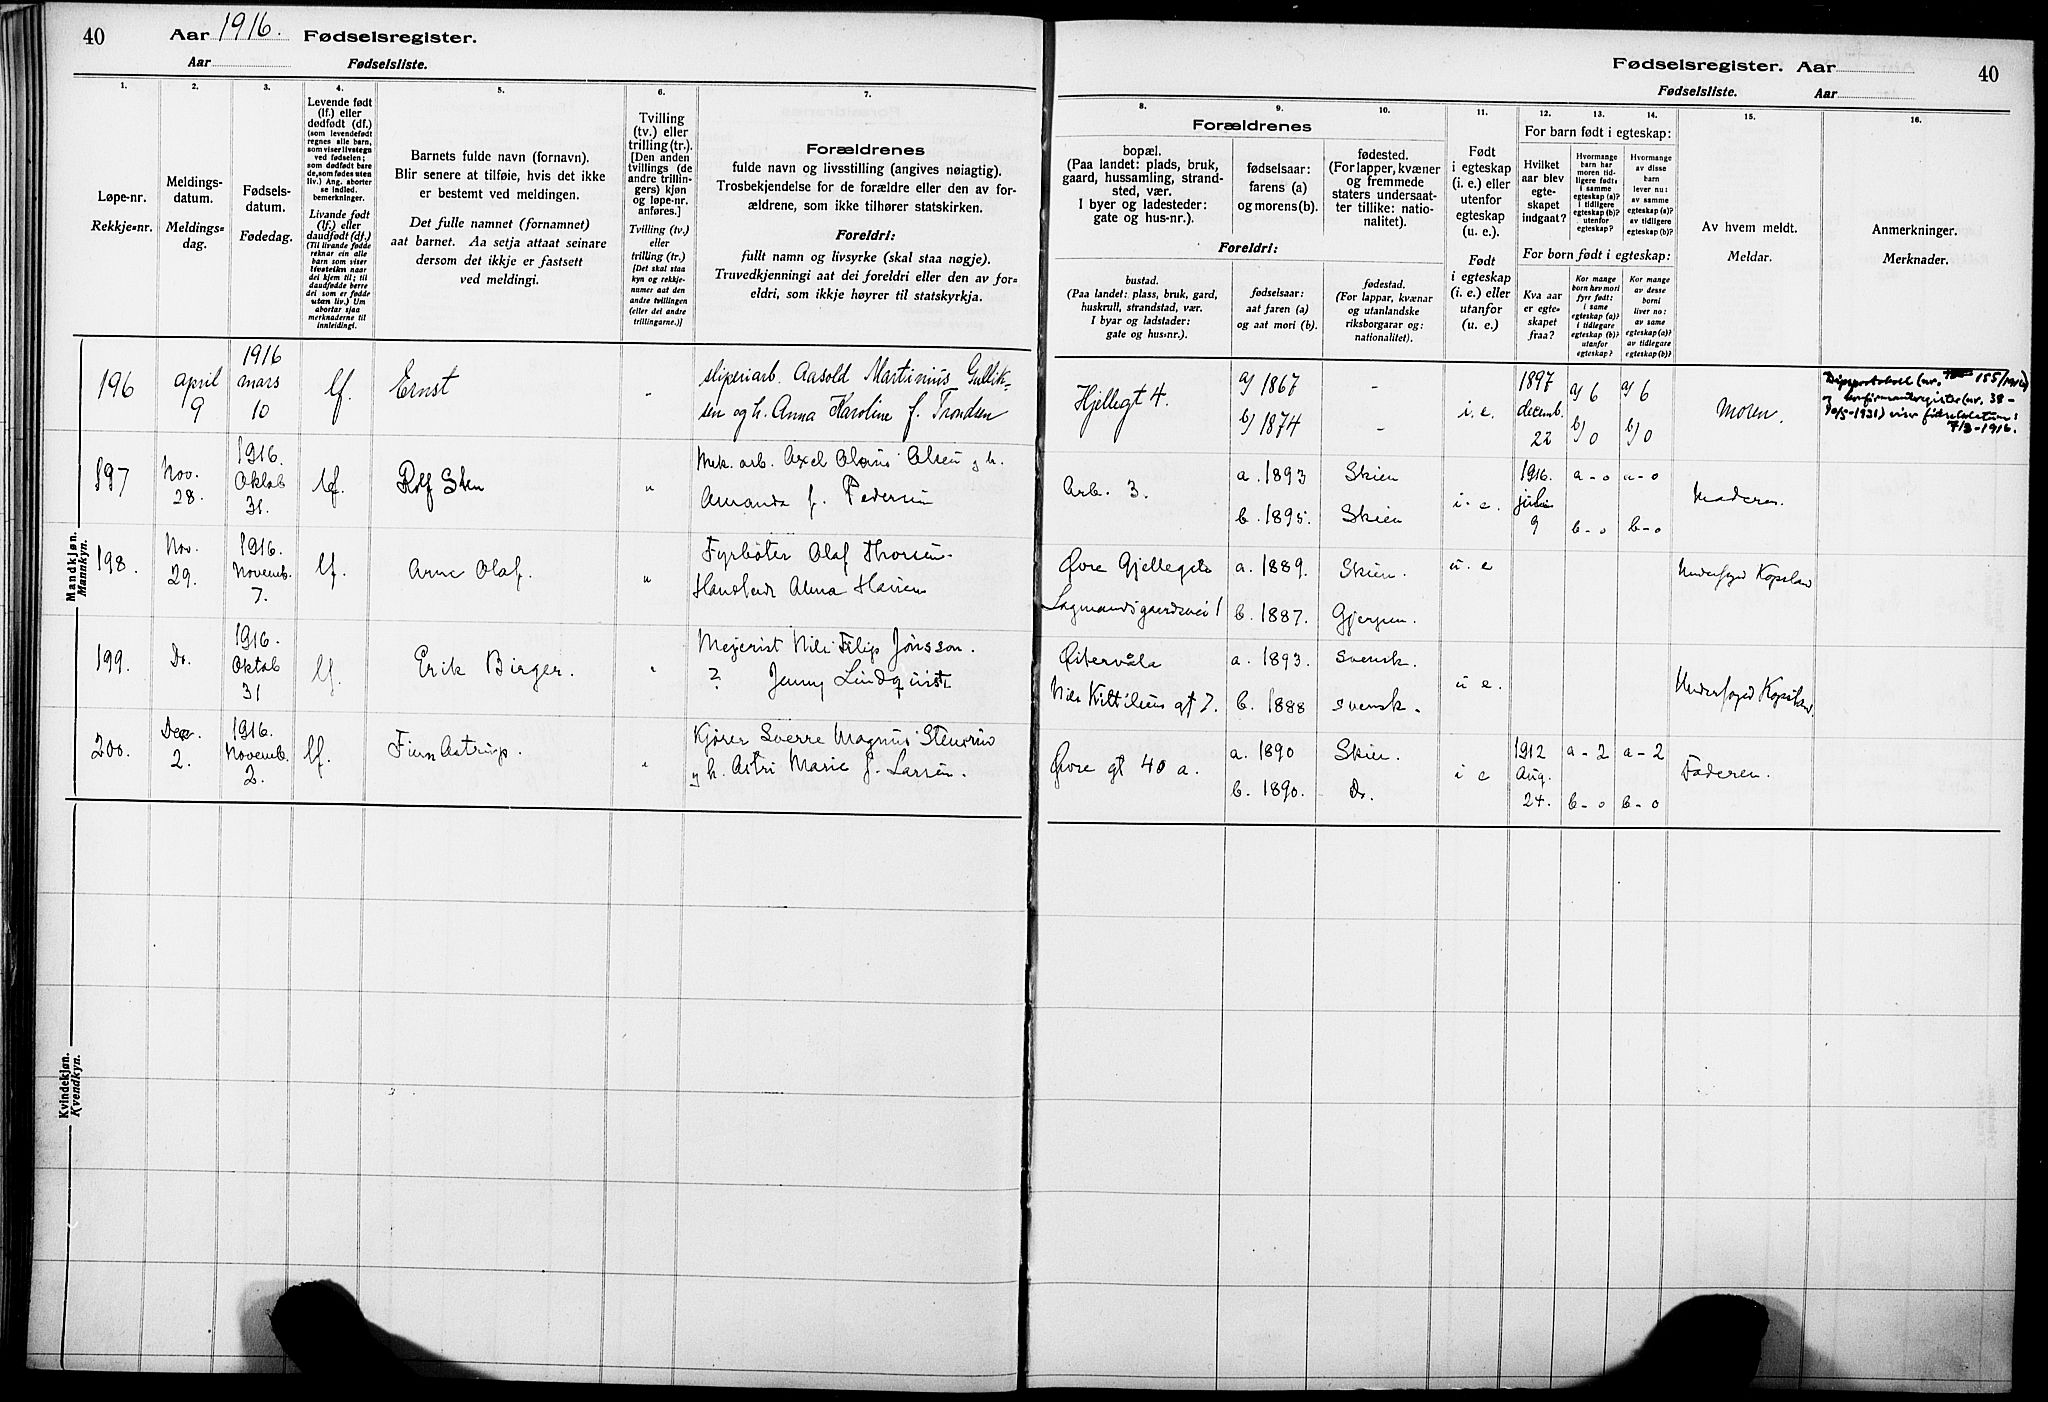 40 Aar 1916. Fødselsregister.
Aar Fødselsliste.
1. 2. 3. 4. 5. 6. 7.
Løpe-nr.
Rekkje-nr.
Meldings-
datum.
Meldings-
dag.
Fødsels-
datum.
Fødedag.
Levende født
(lf.) eller
dødfødt (df.)
(som levendefødt
regnes alle barn,
som viser livstegn
ved fødselen;
som dødfødt bare
de, som fødes uten
liv.) Ang. aborter
se indled.
bemerkninger.
Livande født
(lf.) eller
daudfødt (df.)
(Til livande fødde
reknar ein alle
barn som viser
livsteikn naar
dei kjem til; til
daudfødde berre
dei som er fødde
utan liv.) Um
abortar sjaa
merknaderne til
innleidingi.
Barnets fulde navn (fornavn).
Blir senere at tilføie, hvis det ikke
er bestemt ved meldingen.
Det fulle namnet (fornamnet)
aat barnet. Aa setja attaat seinare
dersom det ikkje er fastsett
ved meldingi.
Tvilling
(tv.) eller
trilling (tr.).
[Den anden
tvillings (de
andre trillin-
gers) kjøn
og løpe-nr.
anføres.]
Tvilling (tv.)
eller
trilling (tr.)
[Det skal staa
kyn og rekkje-
numer aat den
andre tvillingen
(eller dei andre
trillingarne.)]
Forældrenes
fulde navn og livsstilling (angives nøiagtig).
Trosbekjendelse for de forældre eller den av for-
ældrene, som ikke tilhører statskirken.
Foreldri:
fullt namn og livsyrke (skal staa nøgje).
Truvedkjenningi aat dei foreldri eller den av for-
eldri, som ikkje høyrer til statskyrkja.
Mandkjøn.
Mannkyn.
196 april 9 1916 mars 10 lf. Ernst "
sliperiarb. Aasold Martinius Gullik-
sen og h. Anna Karoline f. Trondsen
197 Nov. 28. 1916. Oktob 31. lf. Rolf Sten "
Mek. arb. Axel Olaus Olsen og h.
Amanda f. Pedersen
198. Nov. 29. 1916. Novemb. 7. lf. Arne Olaf. "
Fyrbøter Olaf Thorsen
Alma Hansen
199. Do. 1916. Oktob 31 lf. Erik Birger. "
Mejerist Nils Filip Jönsson.
? Jenny Lindquist
200. Dec. 2. 1916. Novemb. 2. lf. Finn Astrup. "
Kjører Sverre Magnus Stensrud
og h. Astri Marie f. Larsen.
Kvindekjøn.
Kvendkyn.
Fødselsregister. Aar 40
Fødselsliste. Aar
8. 9. 10. 11. 12. 13. 14. 15. 16.
Forældrenes
bopæl.
(Paa landet: plads, bruk,
gaard, hussamling, strand-
sted, vær.
I byer og ladesteder:
gate og hus-nr.).
fødselsaar:
farens (a)
og morens (b).
fødested.
(For lapper, kvæner
og fremmede
staters undersaat-
ter tillike: natio-
nalitet).
Foreldri:
bustad.
(Paa landet: plass, bruk, gard,
huskrull, strandstad, vær.
I byar og ladstader:
gate og hus-nr.).
fødselsaar:
aat faren (a)
og aat mori (b).
fødestad.
(For lappar, kvænar
og utanlandske
riksborgarar og:
nationalitet).
Født
i egteskap
(i. e.) eller
utenfor
egteskap
(u. e.).
Født
i egteskap
(i. e.) eller
utanfor
(u. e.)
For barn født i egteskap:
Hvilket
aar blev
egte-
skapet
indgaat?
Hvormange
barn har
moren tid-
ligere født,
i samme
egteskap (a)?
i tidligere
egteskap (b)?
utenfor
egteskap?
Hvormange
av disse
barn
lever nu:
av samme
egteskap (a)?
av tidligere
egteskap (b)?
For born født i egteskap:
Kva aar
er egte-
skapet
fraa?
Kor mange
born hev mori
fyrr født:
i same
egteskap (a)?
i tidlegare
egteskap (b)?
utanfor
egteskap?
Kor mange
av desse
borni
liver no:
av same
egteskap (a)?
av tidlegare
egteskap (b)?
Av hvem meldt.
Meldar.
Anmerkninger.
Merknader.
Hjellegt 4. a/ 1867 - b/ 1874 - i. e. 1897 decemb. 22 a/ 6 b/ 0 a/ 6 b/ 0 Moren.
155/1916)
og konfirmandregister (nr. 38-
1931) viser fødselsdatum:
7/3-1916.
Arb. 3. a. 1893 Skien b. 1895. Skien i. e. 1916. 9 a - 0 b - 0 a - 0 b - 0 Maderen.
Øvre Gjellegate a. 1889. Skien. u. e
Lagmandsgaardsvei 1 b. 1887. Gjerpen.
Østervåla a. 1893. Svensk. u e.
gt 7. b. 1888 svensk.
Øvre gt 40 a. a. 1890 Skien. b. 1890. Do. i e 1912 Aug. 24. a - 2 b - 0 a - 2 b - 0 Faderen.